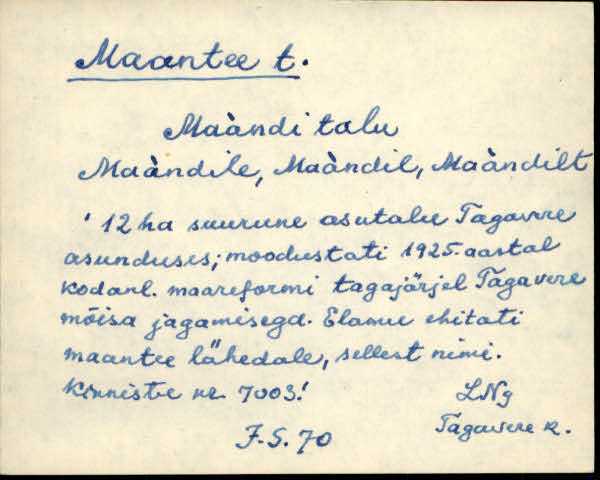 Maantee t.
Maàndi talu
Maàndile, Maàndil, Maàndilt
' 12 ha suurune asutalu Tagavere
asunduses; moodustati 1925. aastal
kodanl. maareformi tagajärjel Tagavere
mõisa jagamisega. Elamu ehitati
maantee lähedale, sellest nimi.
Kinnistu nr. 7003.'
LNg
Tagavere k.
J.S. 70